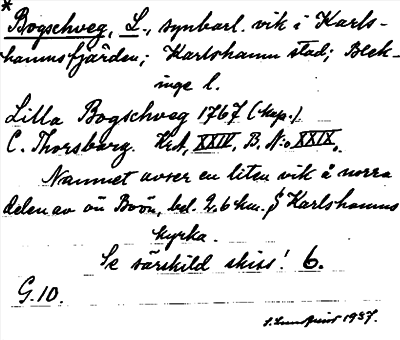 * Bogschveg, L., synbarl. vik i Karls-
hamnsfjärden; Karlshamn stad; Blek-
inge l.
Lilla Bogschveg 1767 (kop.)
C. Thorsborg. Krt, XXIV, B. N:o XXIX.
Namnet avser en liten vik å norra
delen av ön Boön, bel. 2.6 km. S Karlshamns
kyrka.
Se särskild skiss! 6.
G.10.
S. Lundqvist 1937.